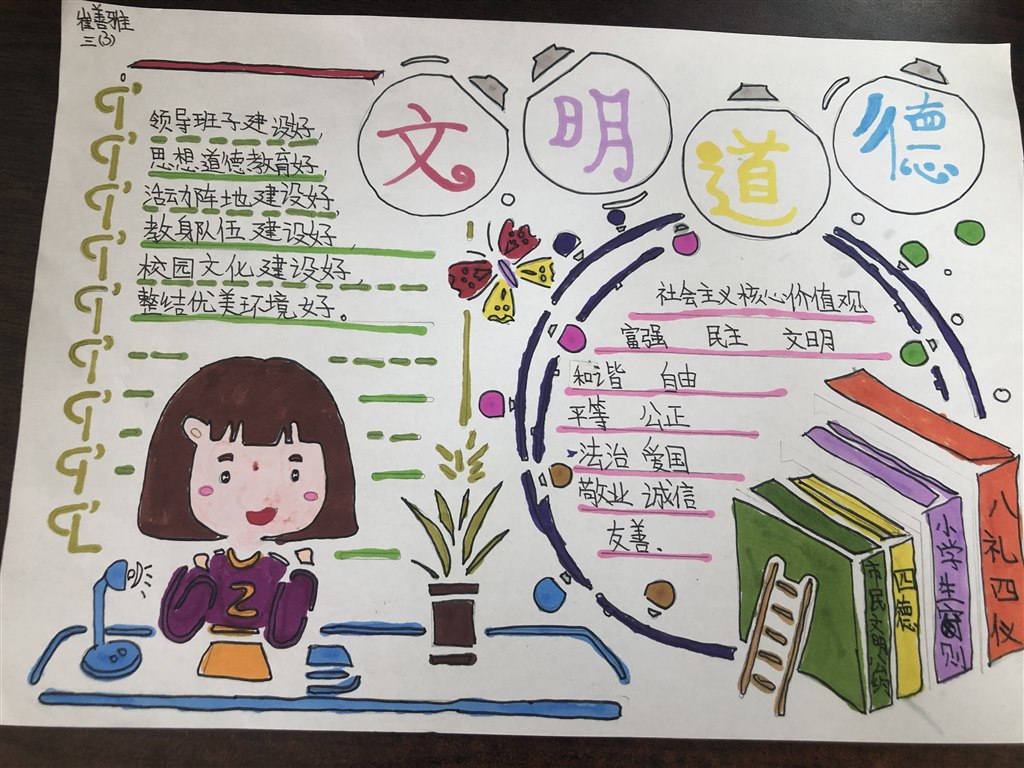 崔善雅
三(3)
文明道德
领导班子建设好,
思想道德教育好,
活动阵地建设好,
教身队伍建设好,
校园文化建设好,
整结优美环境好。
社会主义核心价值观
富强 民主 文明
和谐 自由
平等 公正
法治 爱国
敬业 诚信
友善.
市民文明公约
四德
小学生
八礼四仪